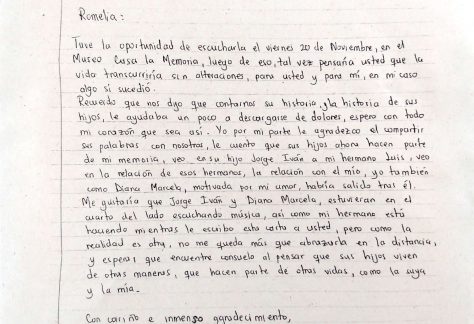 Romelia:
Tuve la oportunidad de escucharla el viernes 20 de Noviembre, en el
Museo Casa la Memoria, luego de eso, tal vez pensaría usted que la
vida transcurriría sin alteraciones, para usted y para mí, en mi caso
algo si sucedió.
Recuerdo que nos dijo que contarnos su historia, y la historia de sus
hijos, le ayudaba un poco a descargarse de dolores, espero con todo
mi corazón que sea así. Yo por mi parte le agradezco el compartir
sus palabras con nosotros, le cuento que sus hijos ahora hacen parte
de mi memoria, veo en su hijo Jorge Iván a mi hermano Luis, veo
en la relación de esos hermanos, la relación con el mío, yo también
como Diana Marcela, motivada por mi amor, habría salido tras él.
Me gustaría que Jorge Iván y Diana Marcela, estuvieran en el
cuarto del lado escuchando música, así como mi hermano está
haciendo mientras le escribo esta carta a usted, pero como la
realidad es otra, no me queda más que abrazarla en la distancia,
y esperar que encuentre consuelo al pensar que sus hijos viven
de otras maneras, que hacen parte de otras vidas, como la suya
y la mía.
Con cariño e inmenso agradecimiento,